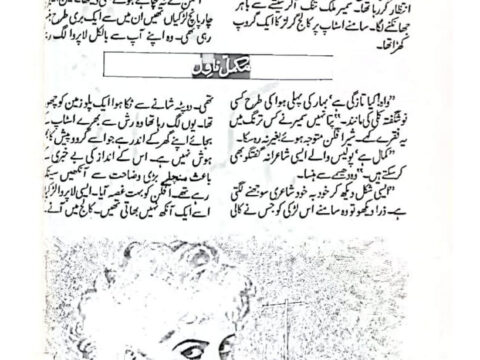 انتظار کر رہا تھا۔ سمیر ملک تنگ آکر شیشے سے باہر
جھانکنے لگا۔ سامنے اسٹاپ پر کالج گرلز کا ایک گروپ
کھڑا تھا۔
چار پانچ لڑکیاں تھیں ان میں سے ایک بری طرح
رہی تھی۔ وہ اپنے آپ سے بالکل لاپروا لگ
مکمل ناول
"واہ! کیا تازگی ہے، بہار کی پہلی ہوا کی طرح کسی
نوشگفتہ کلی کی مانند۔" پتا نہیں سمیر نے کس ترنگ میں
یہ فقرے کہے۔ شیر افگن متوجہ ہوئے بغیر نہ رہ سکا۔
"کمال ہے، پولیس والے ایسی شاعرانہ گفتگو بھی
کرسکتے ہیں۔" وہ دھیمے سے ہنسا۔
"ایسی شکل دیکھ کر خود بہ خود شاعری سوجھنے لگتی
ہے۔ ذرا دیکھو تو وہ سامنے اس لڑکی کو جس نے کالی
تھی۔ دوپٹہ شانے سے ٹکا ہوا ایک پلو زمین کو چھو
تھا۔ یوں لگ رہا تھا وہ رش سے بھرے اسٹاپ
بجائے اپنے گھر کے اندر ہے جو اسے گردوپیش کا
ہوش نہیں ہے۔ اس کے انداز کی بے خبری
باعث منچلے بڑی وضاحت سے آنکھیں سینک
رہے تھے۔ افگن کو بہت غصہ آیا۔ ایسی لاپروا لڑکیاں
اسے ایک آنکھ نہیں بھاتی تھیں۔ کالج میں آتے